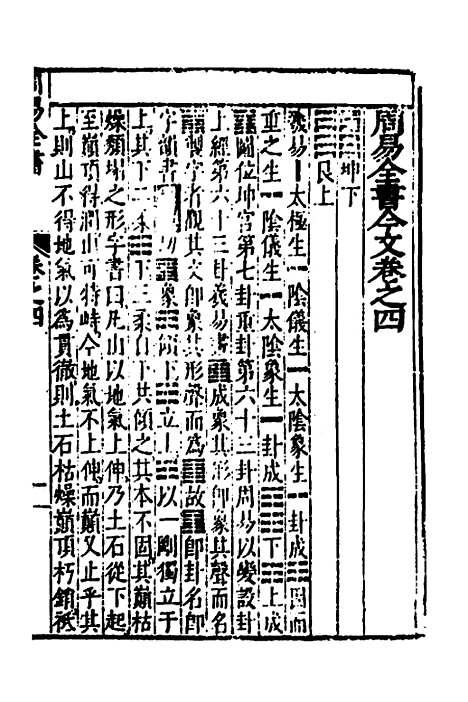 周易全書今文卷之四
坤下
艮上
羲易太極生陰儀生太陰象生卦成因而
重之生陰儀生太陰象生卦成下上成
圖位坤宮第七卦重卦第六十三卦周易以變設卦
上經第六十三卦羲易畫成象其形卽象其聲而名
製字者觀其文卽象其形聲而為故卽卦名卽
字韻書象傾下立上以一剛獨立于
上其下二柔下三柔在下其傾之其本不固其巔枯
燥頹塌之形字書曰凡山以地氣上伸乃土石從下起
至巔頂得潤山可特峙今地氣不上伸而巔又止乎其
上則山不得地氣以為貫徹則土石枯燥巔頂朽銷祗
周易全書
卷之四
一